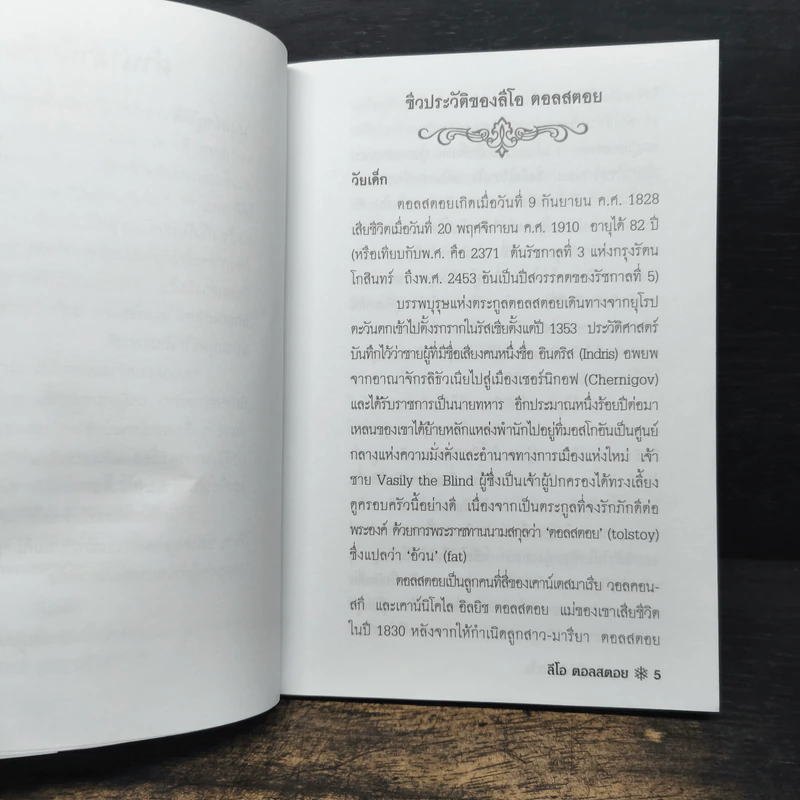 ชีวประวัติของลีโอ ตอลสตอย
วัยเด็ก
ตอลสตอยเกิดเมื่อวันที่ 9 กันยายน ค.ศ. 1828
เสียชีวิตเมื่อวันที่ 20 พฤศจิกายน ค.ศ. 1910 อายุได้ 82 ปี
(หรือเทียบกับพ.ศ. คือ 2371 ต้นรัชกาลที่ 3 แห่งกรุงรัตน
โกสินทร์ ถึงพ.ศ. 2453 อันเป็นปีสวรรคตของรัชกาลที่ 5)
บรรพบุรุษแห่งตระกูลตอลสตอยเดินทางจากยุโรป
ตะวันตกเข้าไปตั้งรกรากในรัสเซียตั้งแต่ปี 1353 ประวัติศาสตร์
บันทึกไว้ว่าชายผู้ที่มีชื่อเสียงคนหนึ่งชื่อ อินดริส (Indris) อพยพ
จากอาณาจักรลิธัวเนียไปสู่เมืองเชอร์นิกอฟ (Chernigov)
และได้รับราชการเป็นนายทหาร อีกประมาณหนึ่งร้อยปีต่อมา
เหลนของเขาได้ย้ายหลักแหล่งพำนักไปอยู่ที่มอสโกอันเป็นศูนย์
กลางแห่งความมั่งคั่งและอำนาจทางการเมืองแห่งใหม่ เจ้า
ชาย Vasily the Blind ผู้ซึ่งเป็นเจ้าผู้ปกครองได้ทรงเลี้ยง
ดูครอบครัวนี้อย่างดี เนื่องจากเป็นตระกูลที่จงรักภักดีต่อ
พระองค์ ด้วยการพระราชทานนามสกุลว่า ‘ตอลสตอย’ (tolstoy)
ซึ่งแปลว่า ‘อ้วน’ (fat)
ตอลสตอยเป็นลูกคนที่สี่ของเคาน์เตสมาเรีย วอลคอน-
สกี้ และเคาน์นิโคไล อิลยิช ตอลสตอย แม่ของเขาเสียชีวิต
ในปี 1830 หลังจากให้กำเนิดลูกสาว-มารียา ตอลสตอย
ลีโอ ตอลสตอย ❄ 5